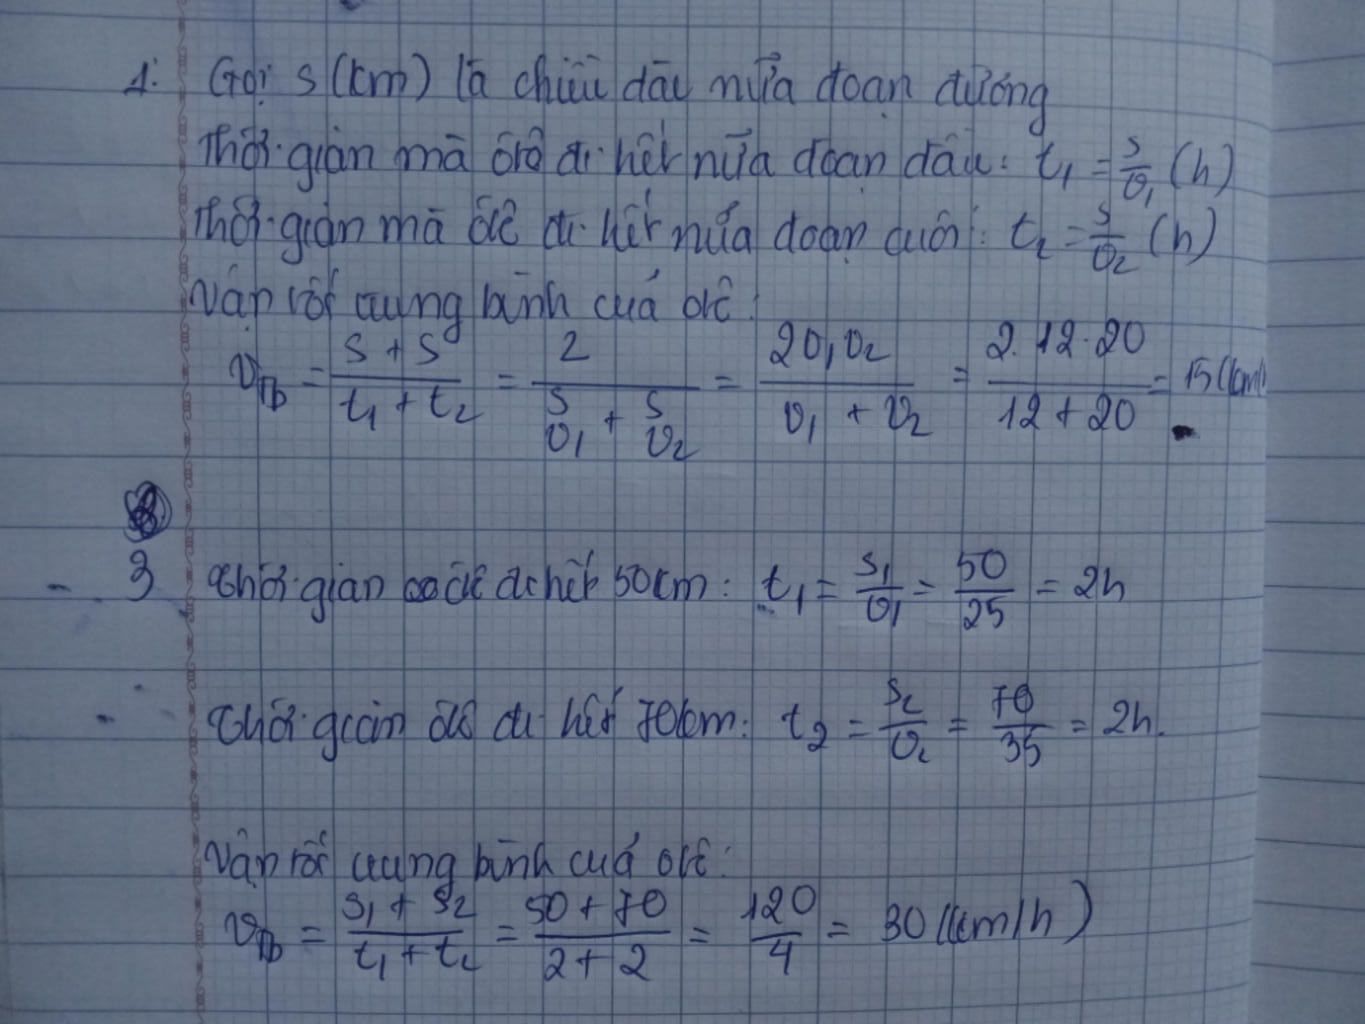 1: Gọi s (km) là chiều dài nửa đoạn đường
Thời gian mà ôtô đi hết nửa đoạn đầu: t₁ = s/v₁ (h)
Thời gian mà ôtô đi hết nửa đoạn cuối: t₂ = s/v₂ (h)
Vận tốc trung bình của ôtô:
v_tb = (s + s)/(t₁ + t₂) = 2/(s/v₁ + s/v₂) = 2v₁v₂/(v₁ + v₂) = (2.12.20)/(12 + 20) = 15 (km/h
3 Thời gian ôtô đi hết 50km: t₁ = s₁/v₁ = 50/25 = 2h
Thời gian ôtô đi hết 70km: t₂ = s₂/v₂ = 70/35 = 2h.
Vận tốc trung bình của ôtô:
v_tb = (s₁ + s₂)/(t₁ + t₂) = (50 + 70)/(2 + 2) = 120/4 = 30 (km/h)